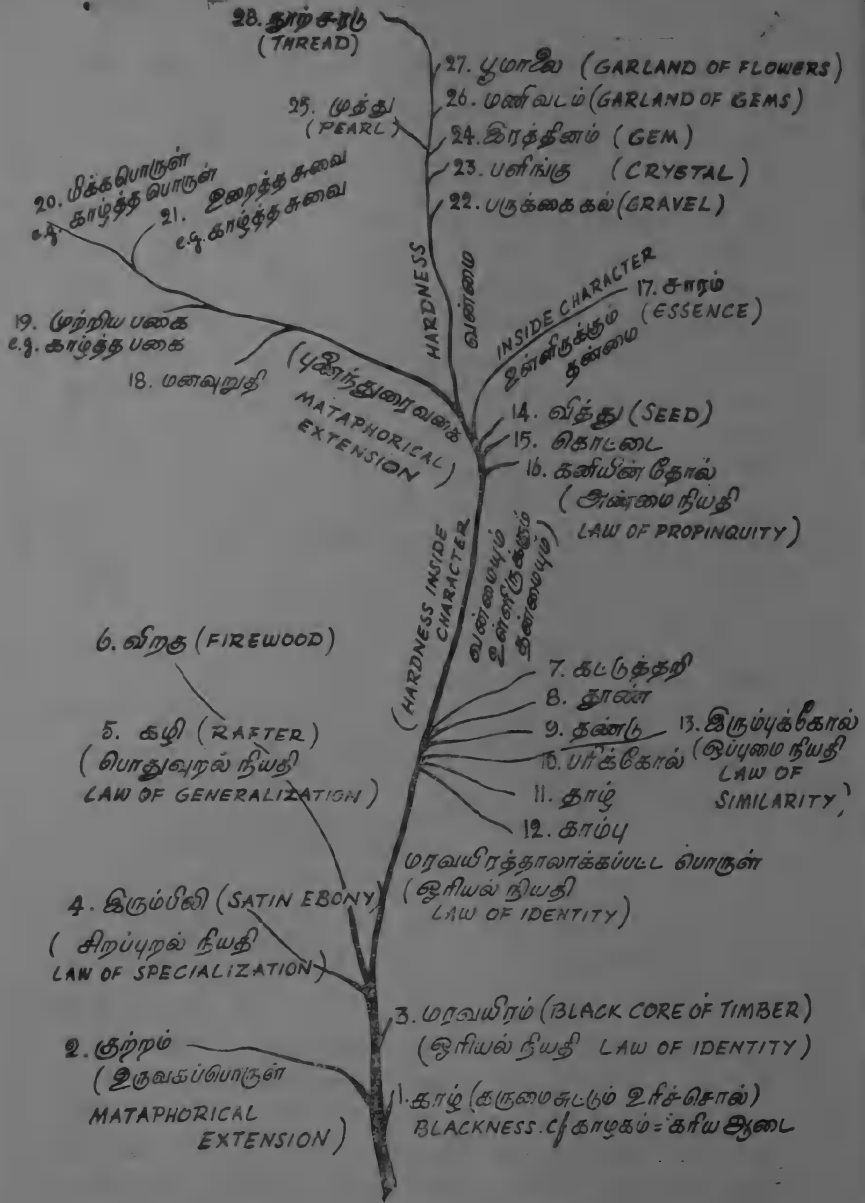 28. நூற்சரடு
(THREAD)
27. பூமாலை (GARLAND OF FLOWERS)
26. மணிவடம் (GARLAND OF GEMS)
25. முத்து
(PEARL)
24. இரத்தினம் (GEM)
23. பளிங்கு (CRYSTAL)
22. பருக்கைகல் (GRAVEL)
20. மிக்கபொருள்
e.g. காழ்த்த பொருள்
21. உறைத்த சுவை
e.g. காழ்த்த சுவை
HARDNESS
வன்மை
INSIDE CHARACTER
உள்ளிருக்கும்
தன்மை
17. சாரம்
(ESSENCE)
19. முற்றிய பகை
e.g. காழ்த்த பகை
18. மனவுறுதி
(புனைந்துரைவகை
MATAPHORICAL
EXTENSION)
14. வித்து (SEED)
15. கொட்டை
16. கனியின் தோல்
(அண்மை நியதி
LAW OF PROPINQUITY)
(HARDNESS INSIDE
CHARACTER
வன்மையும்
உள்ளிருக்கும்
தன்மையும்)
6. விறகு (FIREWOOD)
5. கழி (RAFTER)
(பொதுவுறல் நியதி
LAW OF GENERALIZATION)
7. கட்டுத்தறி
8. தூண்
9. தண்டு
10. பரிக்கோல்
13. இரும்புக்கோல்
(ஒப்புமை நியதி
LAW OF
SIMILARITY)
11. தாழ்
12. காம்பு
மரவயிரத்தாலாக்கப்பட்ட பொருள்
(ஒரியல் நியதி
LAW OF IDENTITY)
4. இரும்பிலி (SATIN EBONY)
(சிறப்புறல் நியதி
LAW OF SPECIALIZATION)
3. மரவயிரம் (BLACK CORE OF TIMBER)
(ஒரியல் நியதி LAW OF IDENTITY)
2. குற்றம்
(உருவகப்பொருள்
MATAPHORICAL
EXTENSION)
1. காழ் (கருமைசுட்டும் உரிச்சொல்)
BLACKNESS. Cf காழகம் = கரிய ஆடை